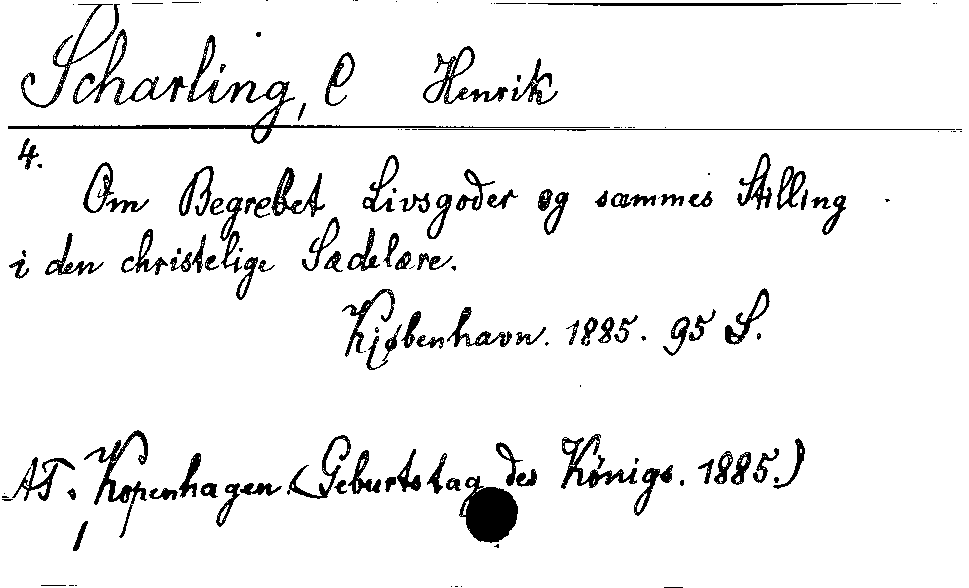 Scharling, C Henrik
4.
Om Begrebet Livsgoder og sammes Stilling
i den christelige Sædelære.
Kjøbenhavn. 1885. 95 S.
AT. Kopenhagen (Geburtstag des Königs. 1885.)